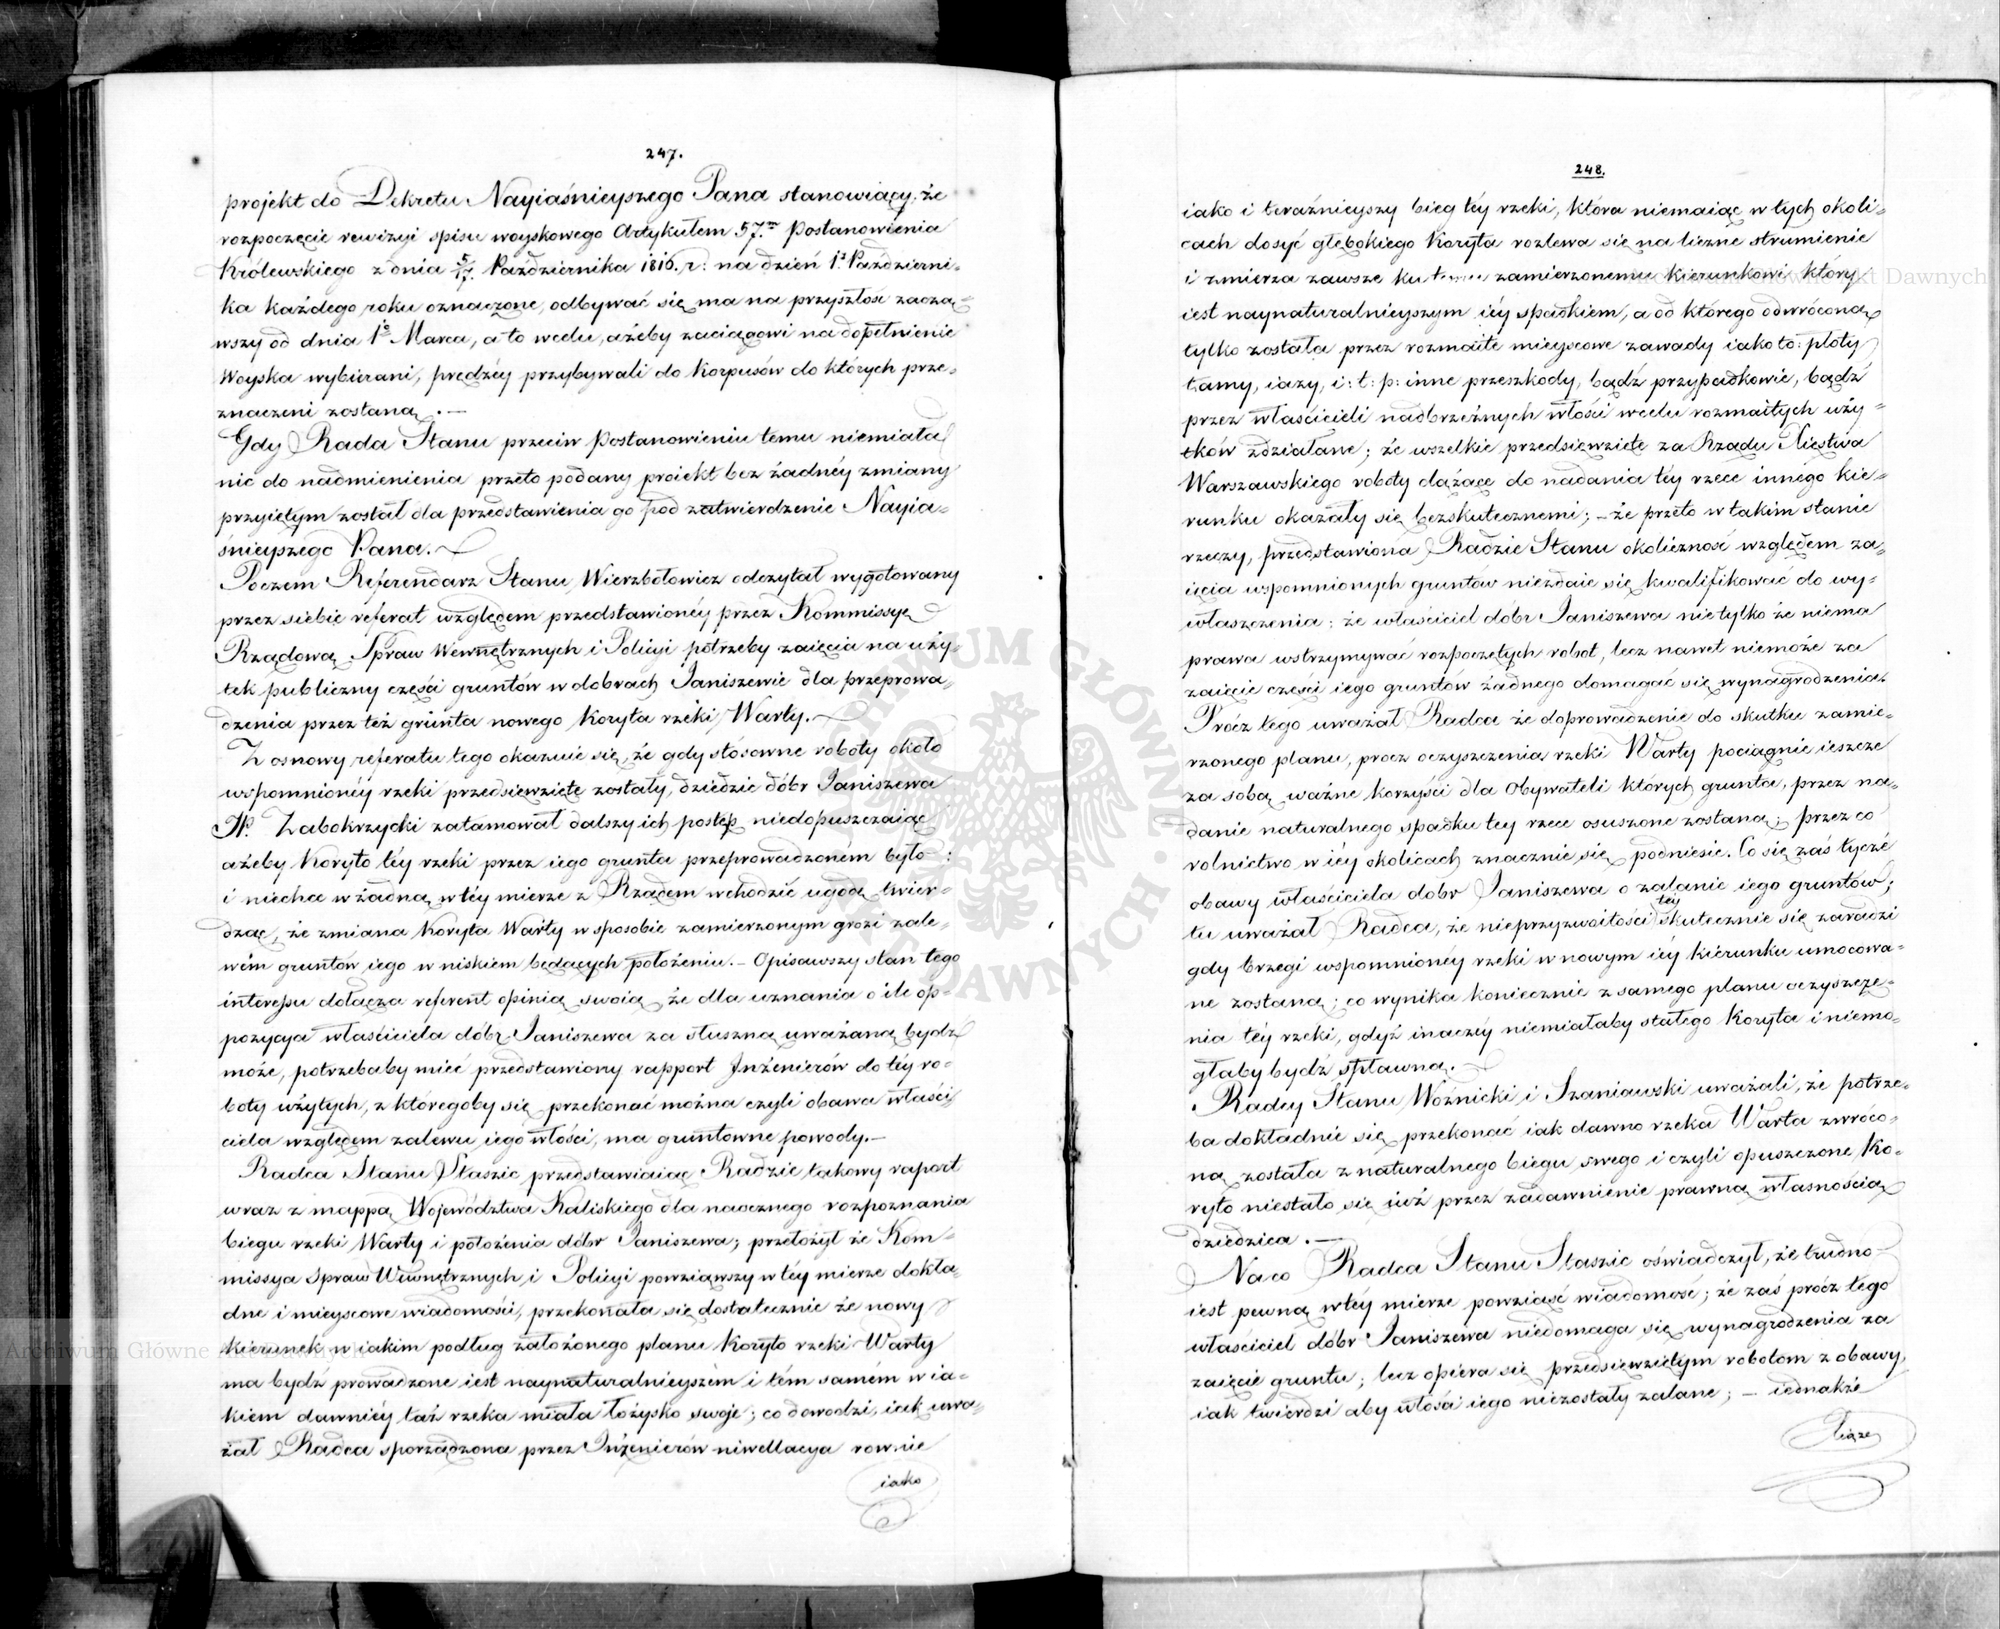 247.
projekt do Dekretu Nayiaśnieyszego Pana stanowiący, że
rozpoczęcie rewizyi spisu woyskowego Artykułem 57.m Postanowienia
Królewskiego z dnia 5/17. Października 1816. r: na dzień 1.o Październi-
ka każdego roku oznaczone, odbywać się ma na przyszłość zaczą-
wszy od dnia 1.o Marca, a to w celu, ażeby zaciągowi na dopełnienie
Woyska wybierani, prędzéy przybywali do Korpusów do których prze-
znaczeni zostaną.—
Gdy Rada Stanu przeciw Postanowieniu temu niemiała
nic do nadmienienia przeto podany proiekt bez żadnéy zmiany
przyiętym został dla przedstawienia go pod zatwierdzenie Nayia-
śnieyszego Pana.—
Poczem Referendarz Stanu Wierzbołowicz odczytał wygotowany
przez siebie referat względem przedstawionéy przez Kommissyę
Rządową Spraw Wewnętrznych i Policyi potrzeby zaięcia na uży-
tek publiczny części gruntów w dobrach Janiszewie dla przeprowa-
dzenia przez też grunta nowego Koryta rzéki Warty.—
Z osnowy referatu tego okazuie się, że gdy stósowne roboty około
wspomnionéy rzeki przedsięwzięte zostały, dziedzic dóbr Janiszewa
JP. Zabokrzycki zatamował dalszy ich postęp niedopuszczaiąc
ażeby Koryto téy rzéki przez iego grunta przeprowadzoném było:
i niechce w żadną w téy mierze z Rządem wchodzić ugodę twier-
dząc, że zmiana Koryta Warty w sposobie zamierzonym grozi zale-
wém gruntów iego w niskiem będących położeniu.— Opisawszy stan tego
interessu dołącza referent opinią swoią że dla uznania o ile op-
pozycya właściciela dóbr Janiszewa za słuszną uważaną bydź
może, potrzebaby mieć przedstawiony rapport Inżenierów do téy ro-
boty użytych, z któregoby się przekonać można czyli obawa właści-
ciela względem zalewu iego włości, ma gruntowne powody.—
Radca Stanu Staszic przedstawiaiąc Radzie takowy raport
wraz z mappą Województwa Kaliskiego dla naocznego rozpoznania
biegu rzeki Warty i położenia dóbr Janiszewa; przełożył że Kom-
missya Spraw Wewnętrznych i Policyi powziąwszy w téy mierze dokła-
dne i mieyscowe wiadomości, przekonała się dostatecznie że nowy
kierunek w iakim podług założonego planu Koryto rzeki Warty
ma bydz prowadzone iest naynaturalnieyszém i tém samém w ia-
kiem dawniéy taż rzeka miała łożysko swoje; co dowodzi, iak uwa-
żał Radca sporządzona przez Inżenierów niwellacya rownie
iako
248.
iako i teraźnieyszy bieg téy rzeki, która niemaiąc w tych okoli-
cach dosyć głębokiego Koryta rozlewa się na liczne strumienie
i zmierza zawsze ku zamierzonemu kierunkowi który
iest naynaturalnieyszym iéy spadkiem, a od którego odwróconą
tylko została przez rozmaite mieyscowe zawady iako to: płoty
tamy, iazy, i: t: p: inne przeszkody, bądź przypadkowie, bądź
przez właścicieli nadbrzeżnych włości w celu rozmaitych uży-
tków zdziałane; że wszelkie przedsięwzięte za Rządu Xięstwa
Warszawskiego roboty dążące do nadania téy rzece innégo kie-
runku okazały się bezskutecznemi; — że przeto w takim stanie
rzeczy, przedstawiona Radzie Stanu okoliczność względem za-
ięcia wspomnionych gruntów niezdaie się kwalifikować do wy-
właszczenia: że właściciel dóbr Janiszewa nietylko że niema
prawa wstrzymywać rozpoczętych robot, lecz nawet niemoże za
zaięcie części iego gruntów żadnego domagać się wynagrodzenia.
Prócz tego uważał Radca że doprowadzenie do skutku zamie-
rzonego planu, procz oczyszczenia rzeki Warty pociągnie ieszcze
za sobą ważne korzyści dla Obywateli których grunta, przez na-
danie naturalnego spadku tey rzece osuszone zostaną; przez co
rolnictwo w iéy okolicach znacznie się podniesie. Co się zaś tyczé
obawy właściciela dobr Janiszewa o zalanie iego gruntów;
tu uważał Radca, że nieprzyzwoitości tey skutecznie się zaradzi
gdy brzegi wspomnionéy rzéki w nowym iéy kierunku umocowa-
ne zostaną; co wynika koniecznie z samego planu oczyszcze-
nia téy rzeki, gdyż inaczéy niemiałaby stałego Koryta i niemo-
głaby bydź spławną.—
Radcy Stanu Woźnicki i Szaniawski uważali, że potrze-
ba dokładnie się przekonać iak dawno rzeka Warta zwróco-
ną została z naturalnego biegu swego i czyli opuszczone Ko-
ryto niestało się iuż przez zadawnienie prawną własnością
dziedzica.—
Na co Radca Stanu Staszic oświadczył, że trudno
iest pewną w téy mierze powziąść wiadomość; że zaś prócz tégo
własciciel dóbr Janiszewa niedomaga się wynagrodzenia za
zaięcie gruntu; lecz opiera się przedsięwziętym robotom z obawy,
iak twierdzi aby włości iego niezostały zalane; — iednakże
Xiąże